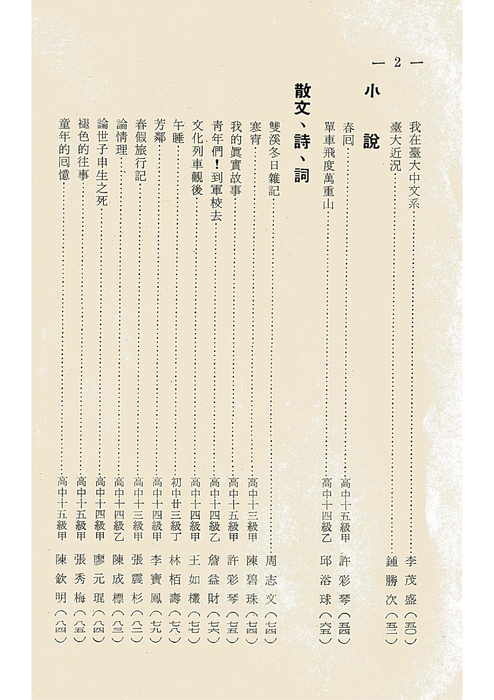 — 2 —
我在臺大中文系⋯⋯李茂盛(五〇)
臺大近況⋯⋯鍾勝次(五二)
小說
春回⋯⋯高中十五級甲 許彩琴(五四)
單車飛度萬重山⋯⋯高中十四級乙 邱浴球(六五)
散文、詩、詞
雙溪冬日雜記⋯⋯周志文(七四)
寒宵⋯⋯高中十三級甲 陳碧珠(七四)
我的眞實故事⋯⋯高中十五級甲 許彩琴(七五)
青年們!到軍校去⋯⋯高中十四級乙 詹益財(七六)
文化列車觀後⋯⋯高中十四級甲 王如欉(七七)
午睡⋯⋯初中廿三級丁 林栢壽(七八)
芳鄰⋯⋯高中十四級甲 李寶鳳(七九)
春假旅行記⋯⋯高中十三級甲 張震杉(八二)
論情理⋯⋯高中十四級乙 陳成標(八三)
論世子申生之死⋯⋯高中十四級甲 廖元琨(八四)
褪色的往事⋯⋯高中十五級甲 張秀梅(八五)
童年的囘憶⋯⋯高中十五級甲 陳欽明(八四)